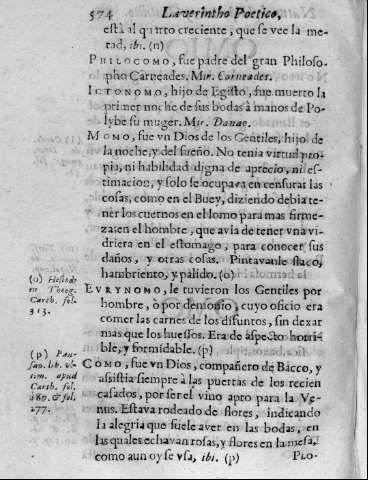 574 Laverintho Poetico,
està al quarto creciente, que se vee la me-
tad, ibi. (n)
PHILOCOMO, fue padre del gran Philoso-
pho Carneades. Mir. Corneades.
ICTONOMO, hijo de Egisto, fue muerto la
primer noche de sus bodas à manos de Po-
lybe su muger. Mir. Danao.
MOMO, fue vn Dios de los Gentiles, hijo de
la noche, y del sueño. No tenia virtud pro-
pia, ni habilidad digna de aprecio, ni es-
timacion, y solo se ocupava en censurar las
cosas, como en el Buey, diziendo debia te-
ner los cuernos en el lomo para mas firme-
za: en el hombre, que avia de tener vna vi-
driera en el estomago, para conocer sus
daños, y otras cosas. Pintavanle flaco,
hambriento, y palido. (o)
(o) Hesiodo
in Theog.
Carth. fol.
313.
EVRYNOMO, le tuvieron los Gentiles por
hombre, ò por demonio, cuyo oficio era
comer las carnes de los difuntos, sin dexar
mas que los huessos. Era de aspecto horri-
ble, y formidable. (p)
(p) Pau-
san. lib. vl-
tim. apud
Carth. fol.
189. & fol.
277.
COMO, fue vn Dios, compañero de Bacco, y
assistia siempre à las puertas de los recien
casados, por ser el vino apto para la Ve-
nus. Estava rodeado de flores, indicando
la alegria que suele aver en las bodas, en
las quales echavan rosas, y flores en la mesa,
como aun oy se vsa, ibi. (p)
PLO-